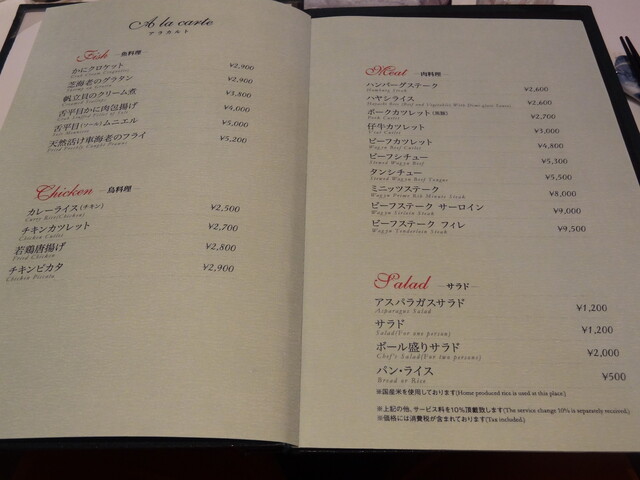 A la carte
アラカルト
Fish —魚料理—
かにクロケット ¥2,900
芝海老のグラタン ¥2,900
帆立貝のクリーム煮 ¥3,800
舌平目かに肉包揚げ ¥4,000
舌平目(ソール)ムニエル ¥5,000
天然活け車海老のフライ ¥5,200
Chicken —鳥料理—
カレーライス(チキン) ¥2,500
Curry Rice(Chicken)
チキンカツレット ¥2,700
Chicken Cutlet
若鶏唐揚げ ¥2,800
Fried Chicken
チキンピカタ ¥2,900
Chicken Piccata
Meat —肉料理—
ハンバーグステーキ ¥2,600
Hamburg Steak
ハヤシライス ¥2,600
ポークカツレット ¥2,700
Pork Cutlet
仔牛カツレット ¥3,000
Veal Cutlet
ビーフカツレット ¥4,800
Wagyu Beef Cutlet
ビーフシチュー ¥5,300
Stewed Wagyu Beef
タンシチュー ¥5,500
Stewed Wagyu Beef Tongue
ミニッツステーキ ¥8,000
Wagyu Prime Rib Minute Steak
ビーフステーキ サーロイン ¥9,000
Wagyu Sirloin Steak
ビーフステーキ フィレ ¥9,500
Wagyu Tenderloin Steak
Salad —サラダ—
アスパラガスサラダ ¥1,200
Asparagus Salad
サラダ ¥1,200
Salad(For one potion)
ボール盛りサラダ ¥2,000
Chef's Salad(For two potions)
パン・ライス ¥500
Bread or Rice
※国産米を使用しております(Home produced rice is used at this place.)
※上記の他、サービス料を10%頂戴致します(The service charge 10% is separately required.)
※価格には消費税が含まれております(Tax included.)